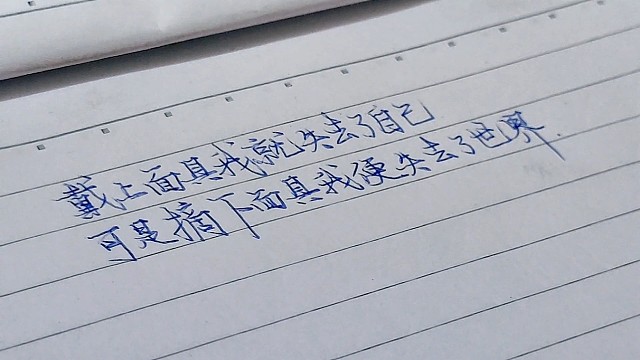 戴上面具我就失去了自己
可是摘下面具我便失去了世界.